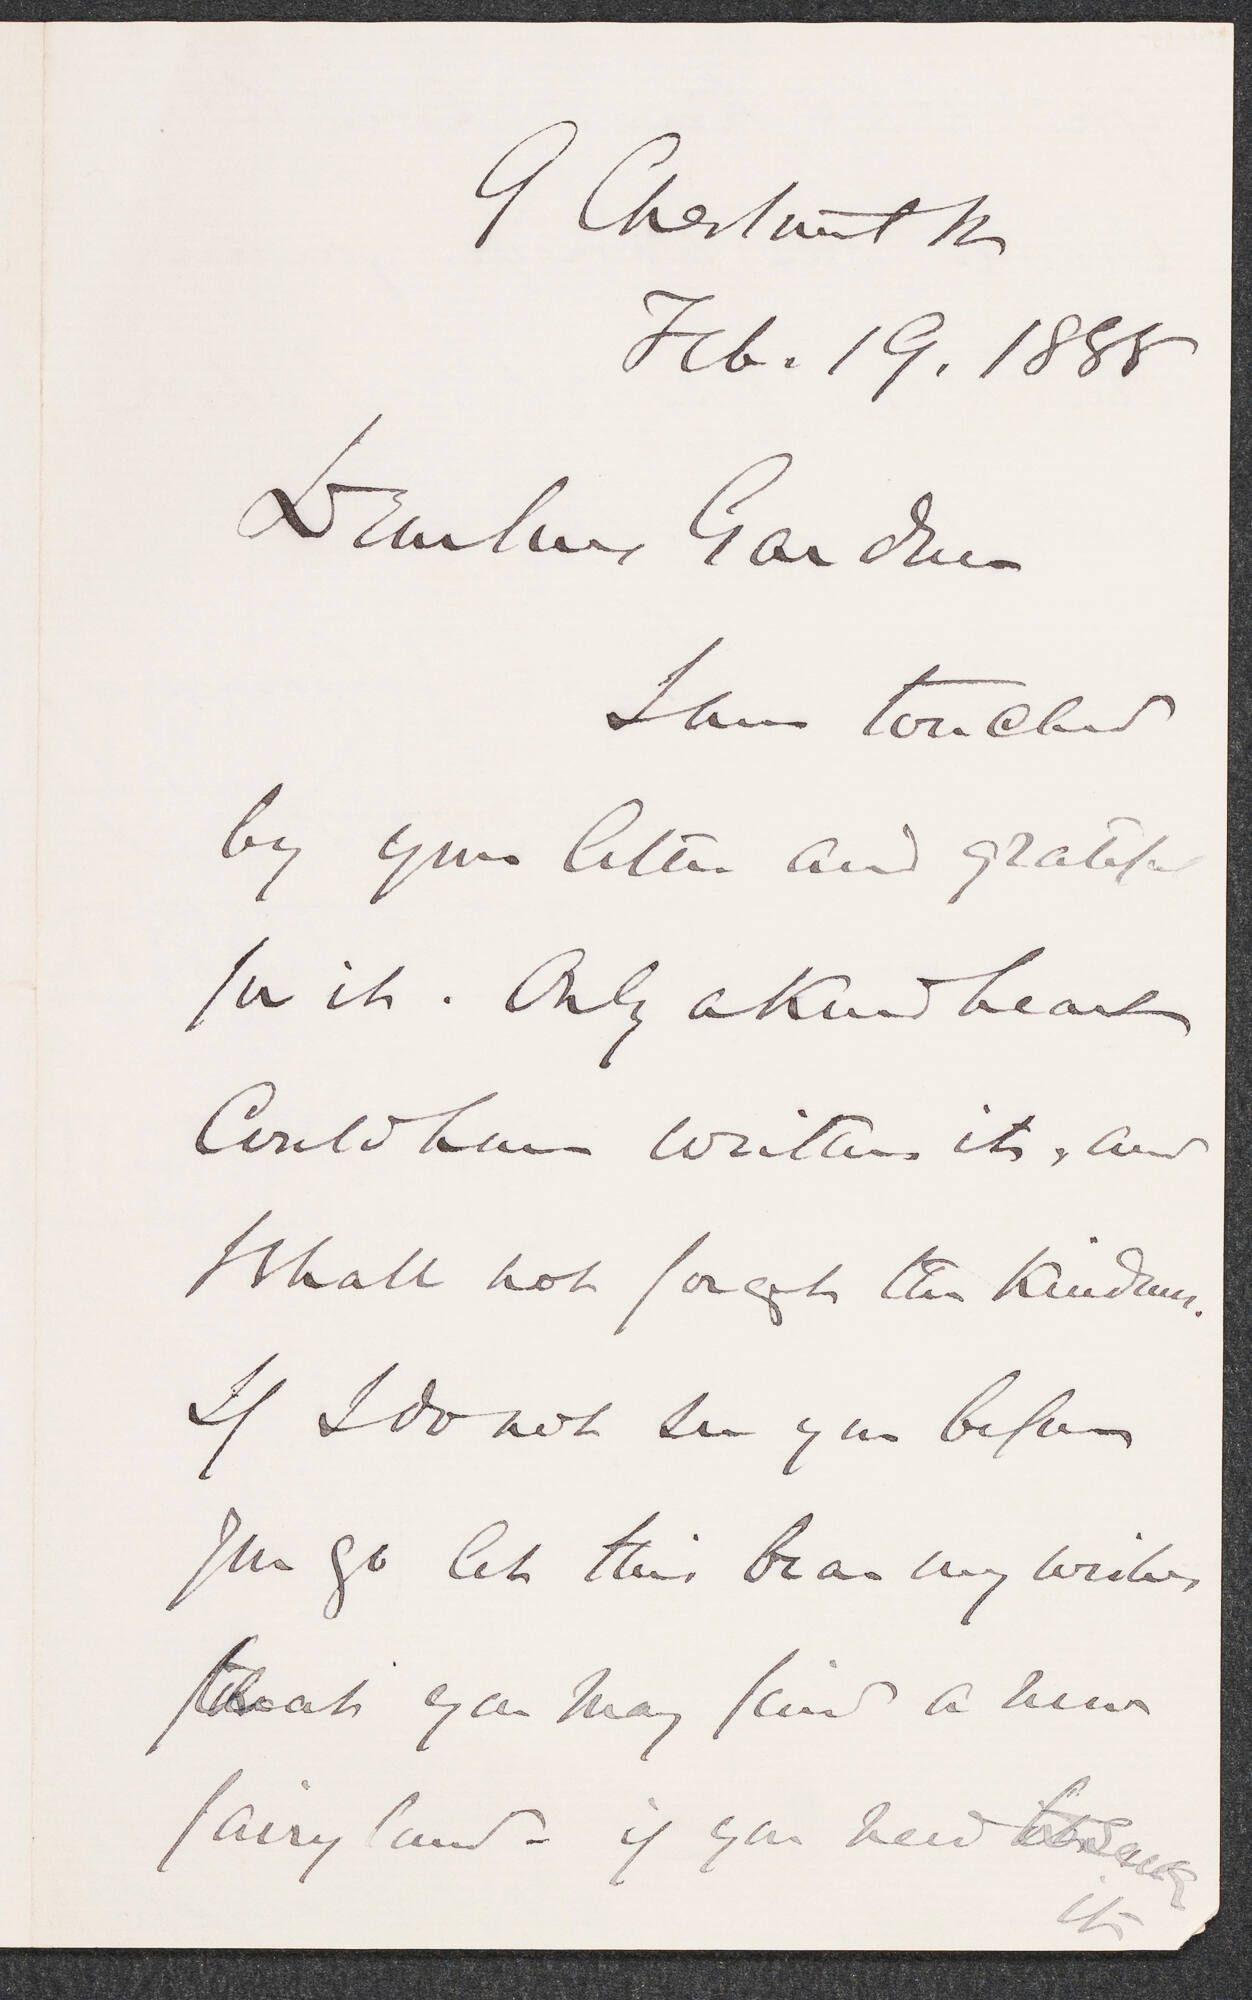 9 Chestnut St
Feb. 19. 1888
Dear Mrs Gardner
I am touched
by your letter and grateful
for it. Only a kind heart
Could have written it, and
I shall not forget the kindness.
If I do not see you before
you go let this bear my wishes
that you may find a new
fairyland - if you need to seek
it